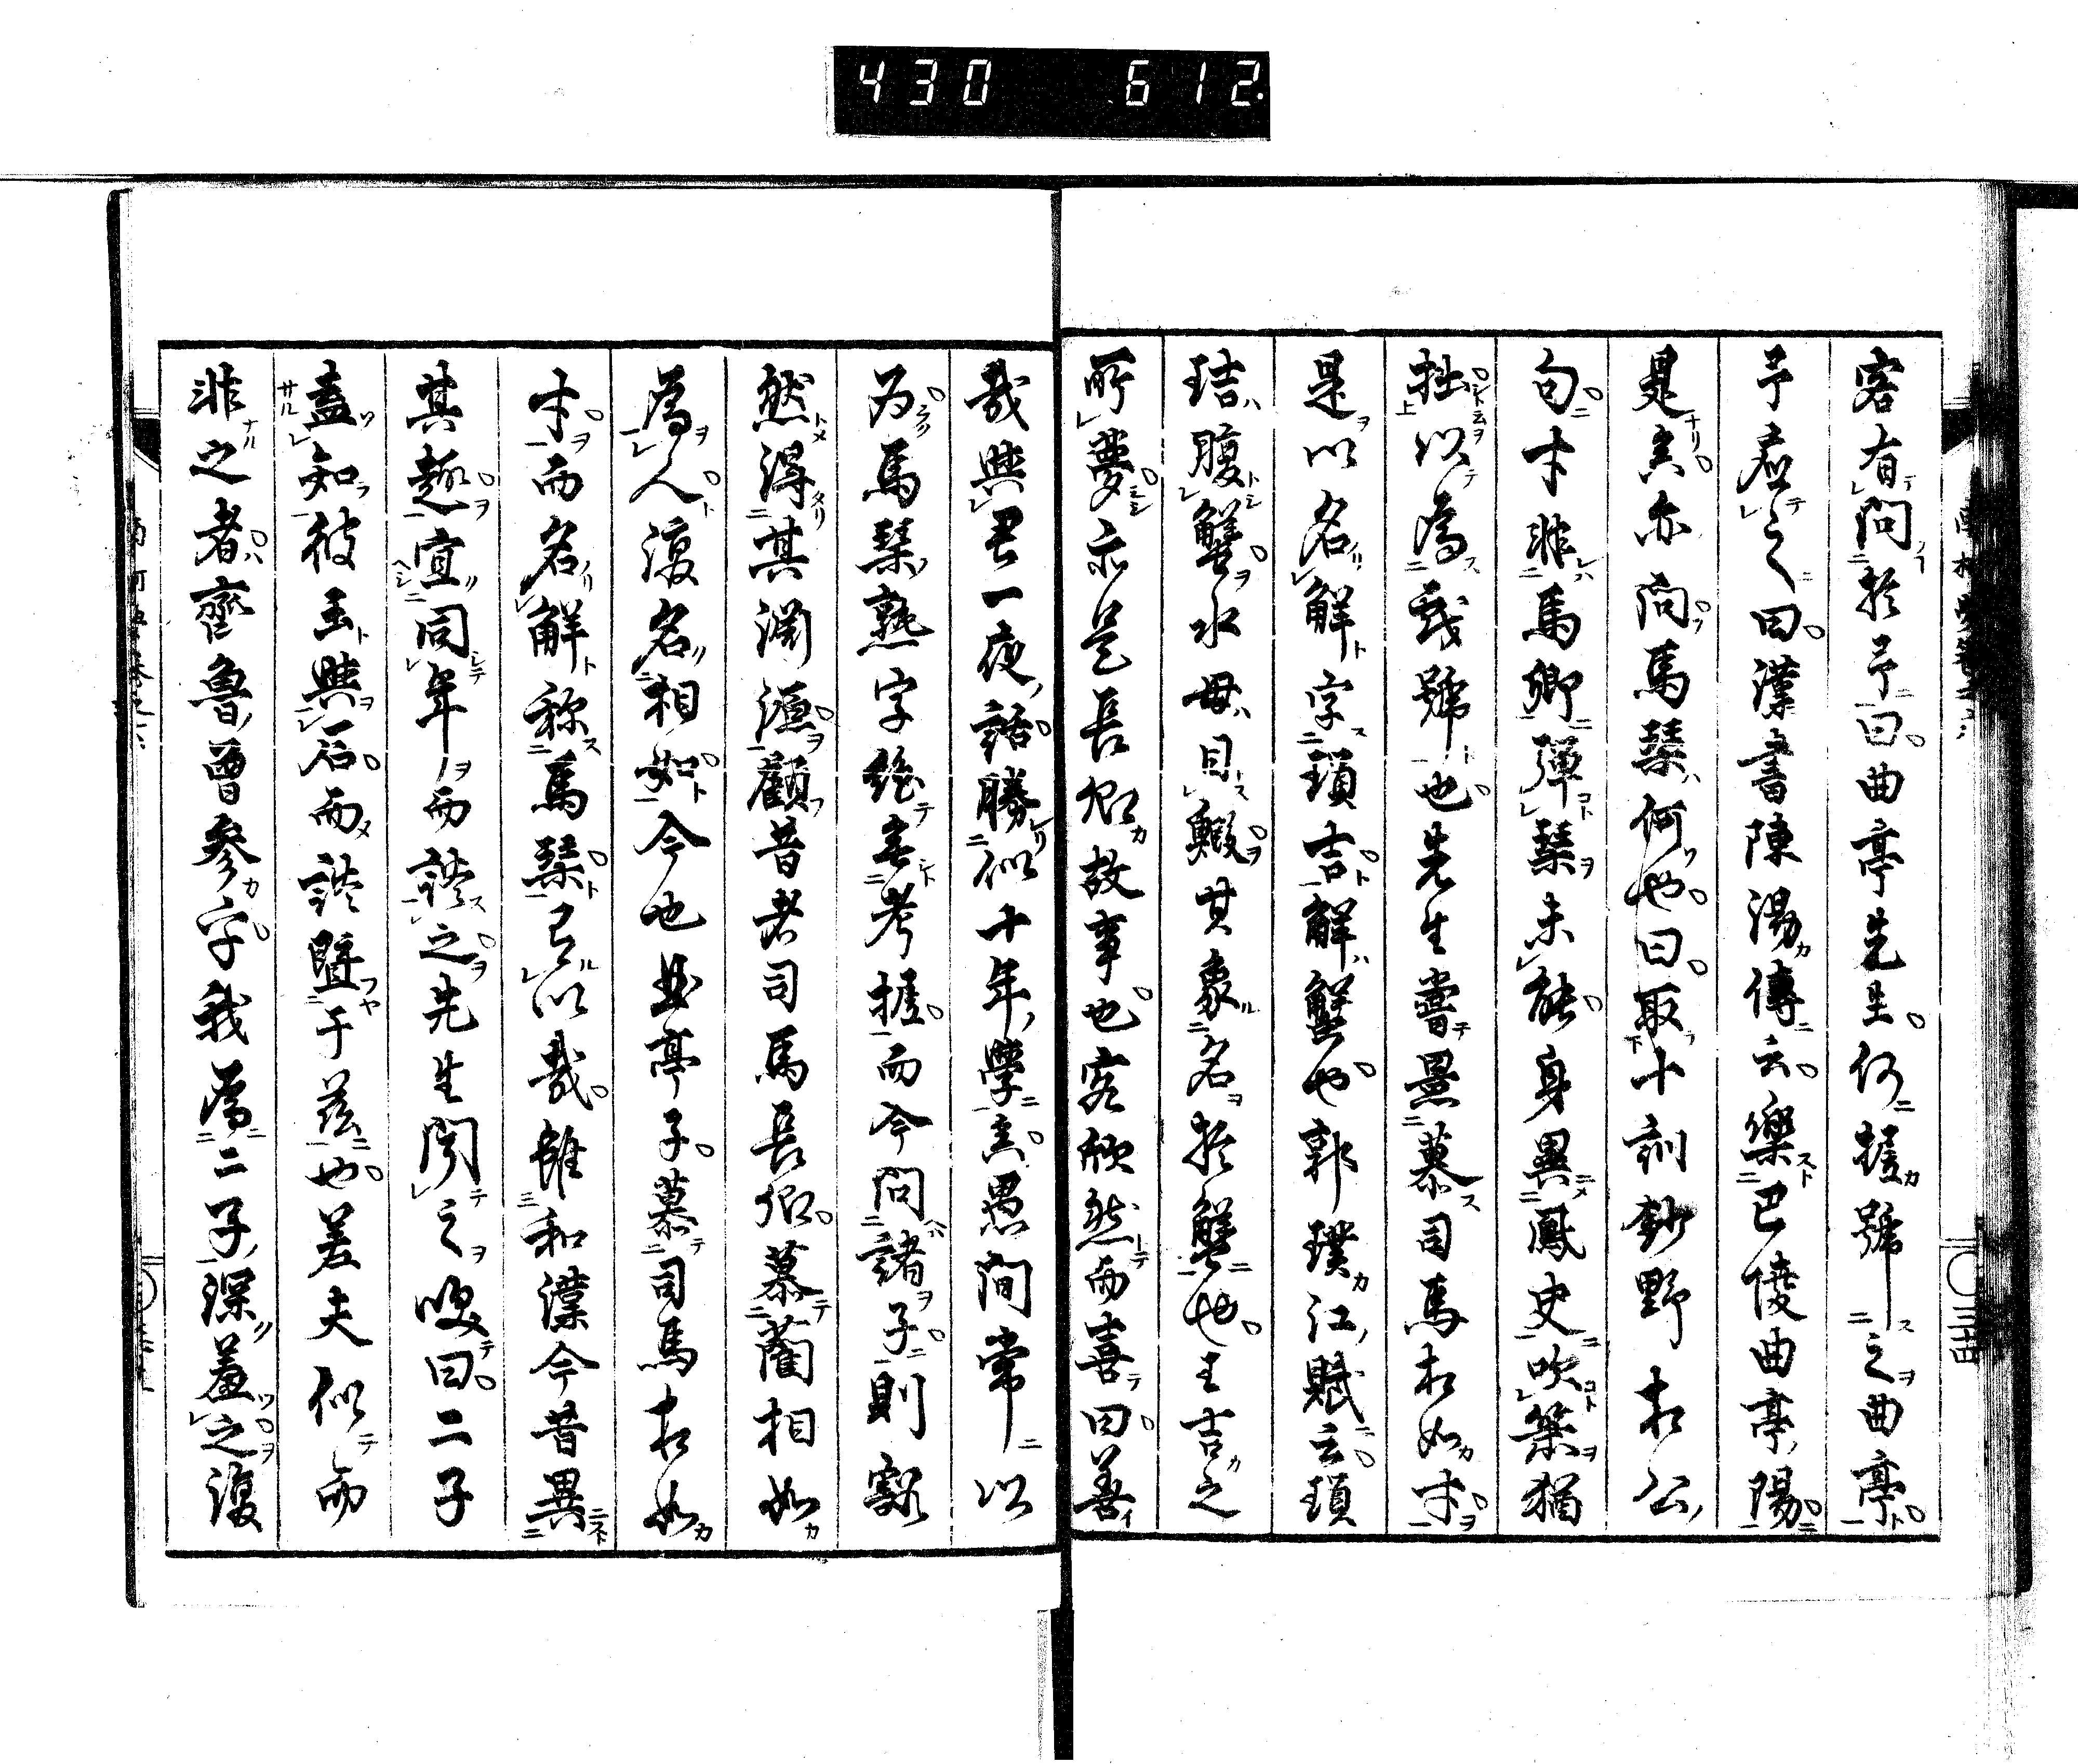 430 612
客有問於予曰曲亭先生何据號之曲亭
予應之曰漢書陳湯傳云樂巴陵曲亭陽
是矣亦問馬琴何也曰取十訓鈔野相公
句才非馬卿彈琴未能身異鳳史吹簫猶
拙以為戲號也先生嘗景慕司馬相如才
是以名解字瑣吉解蟹也郭璞江賦云瑣
蛣腹蟹水母目蝦其象名於蟹也王吉之
所夢亦是長卿故事也客欣然而喜曰善
哉與君一夜話勝似十年學矣愚間常以
為馬琴熟字絶無考据而今問諸子則豁
然得其淵源顧昔者司馬長卿慕藺相如
為人復名相如今也曲亭子慕司馬相如
才而名解稱馬琴已以哉雖和漢今昔異
其趣宜同年而談之先生聞之唉曰二子
盍知彼玉與石而談曁于茲也差夫似而
非之者齊魯曾參字我為二子深羞之復